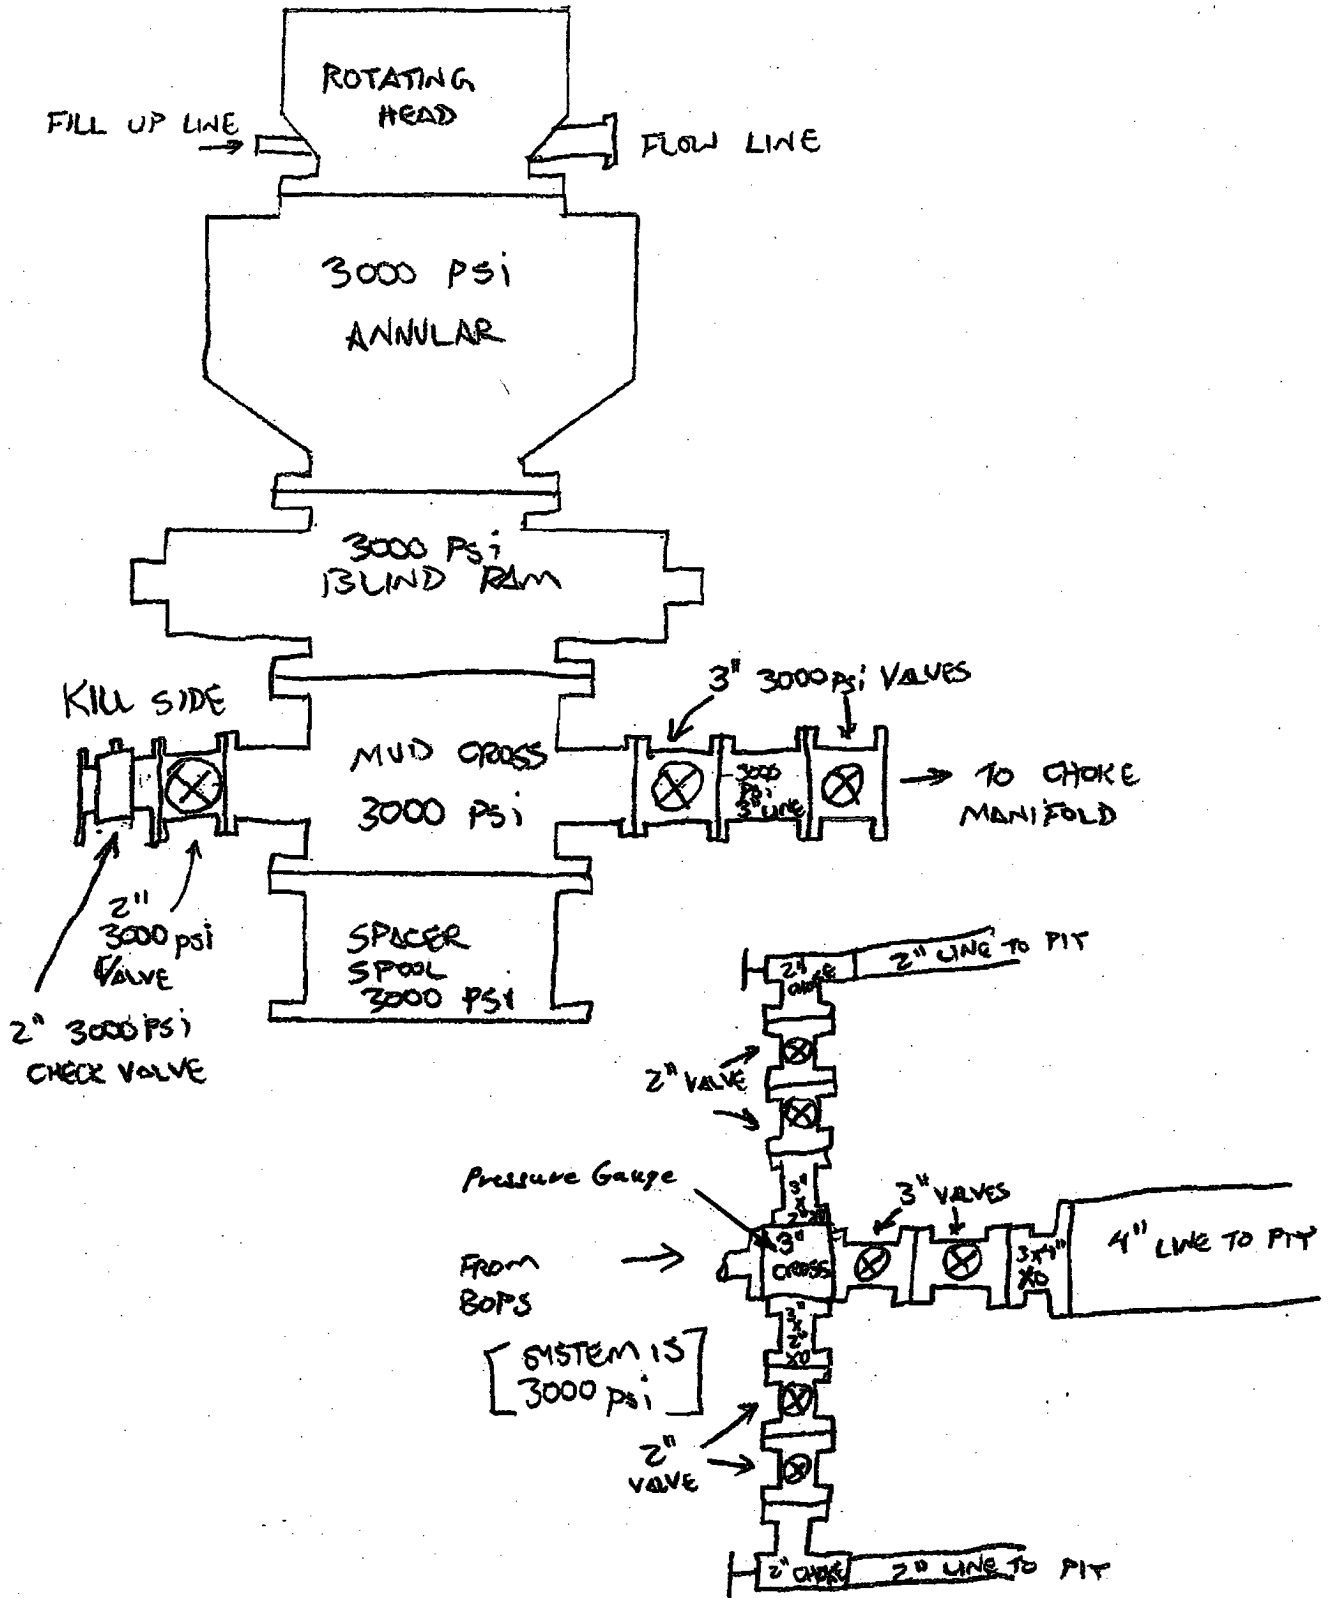 ROTATING
HEAD
FILL UP LINE
FLOW LINE
3000 PSi
ANNULAR
3000 PSi
BLIND RAM
KILL SIDE
3" 3000 PSi VALVES
MUD CROSS
3000 PSi
3000
PSi
3" LINE
TO CHOKE
MANIFOLD
2"
3000 psi
VALVE
2" 3000 PSi
CHECK VALVE
SPACER
SPOOL
3000 PSI
2"
CHOKE
2" LINE TO PIT
2" VALVE
Pressure Gauge
3"
X
2"
3" VALVES
3"
CROSS
3x4"
XO
4" LINE TO PIT
FROM
BOPS
3"
X
2"
XO
[SYSTEM IS
3000 psi]
2"
VALVE
2" CHOKE
2" LINE TO PIT